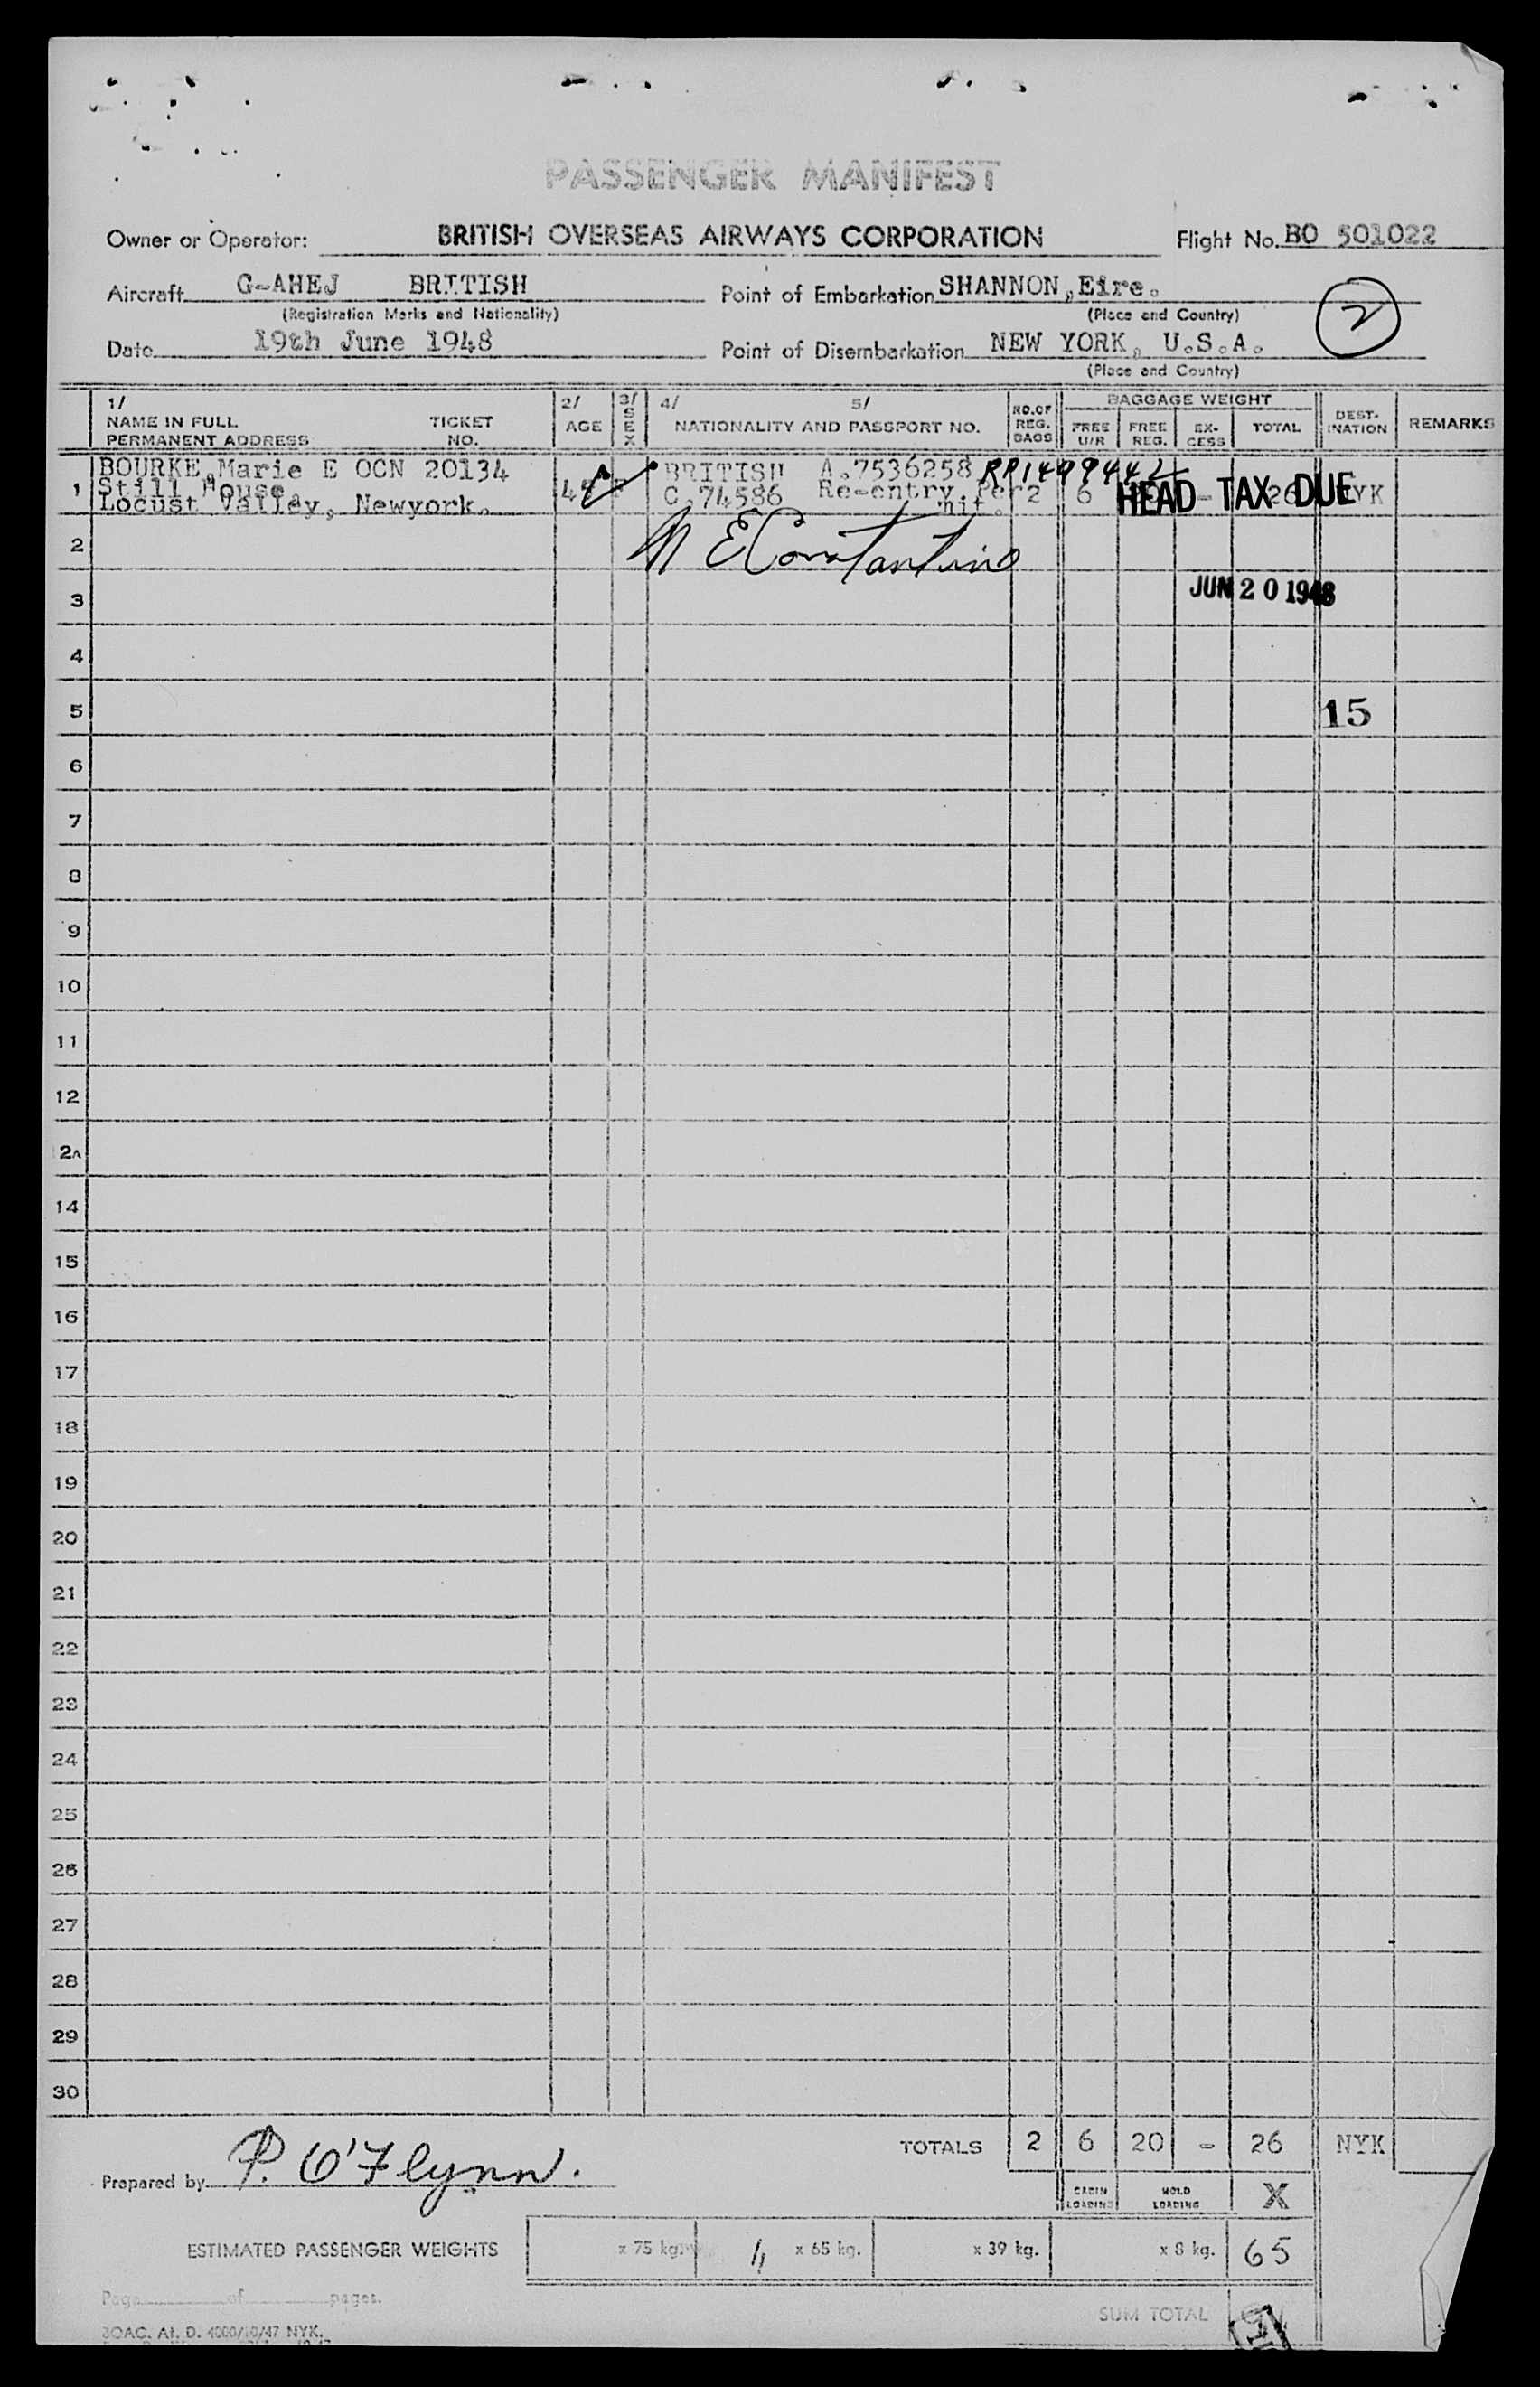 PASSENGER MANIFEST
Owner or Operator: BRITISH OVERSEAS AIRWAYS CORPORATION Flight No. BO 501022
Aircraft G-AHEJ BRITISH Point of Embarkation SHANNON, Eire.
(Registration Marks and Nationality) (Place and Country)
2
Date 19th June 1948 Point of Disembarkation NEW YORK, U.S.A.
(Place and Country)
1/ NAME IN FULL PERMANENT ADDRESS TICKET NO. 2/ AGE 3/ SEX 4/ 5/ NATIONALITY AND PASSPORT NO. NO.OF REG. BAGS BAGGAGE WEIGHT FREE U/R FREE REG. EX-CESS TOTAL DEST-INATION REMARKS
BOURKE, Marie E OCN 20134 BRITISH A.7536258 RP1499442
1 Still House, C.74586 Re-entry Per 2 6 HEAD TAX DUE - 26 NYK
Locust Valley, Newyork. mit.
2 M E Constantine
3 JUN 20 1948
4
5 15
6
7
8
9
10
11
12
2A
14
15
16
17
18
19
20
21
22
23
24
25
26
27
28
29
30
TOTALS 2 6 20 - 26 NYK
Prepared by P. O'Flynn.
CABIN LOADING HOLD LOADING X
ESTIMATED PASSENGER WEIGHTS x 75 kg. 1 x 65 kg. x 39 kg. x 8 kg. 65
Page of pages.
SUM TOTAL
BOAC. At. D. 4000/10/47 NYK.